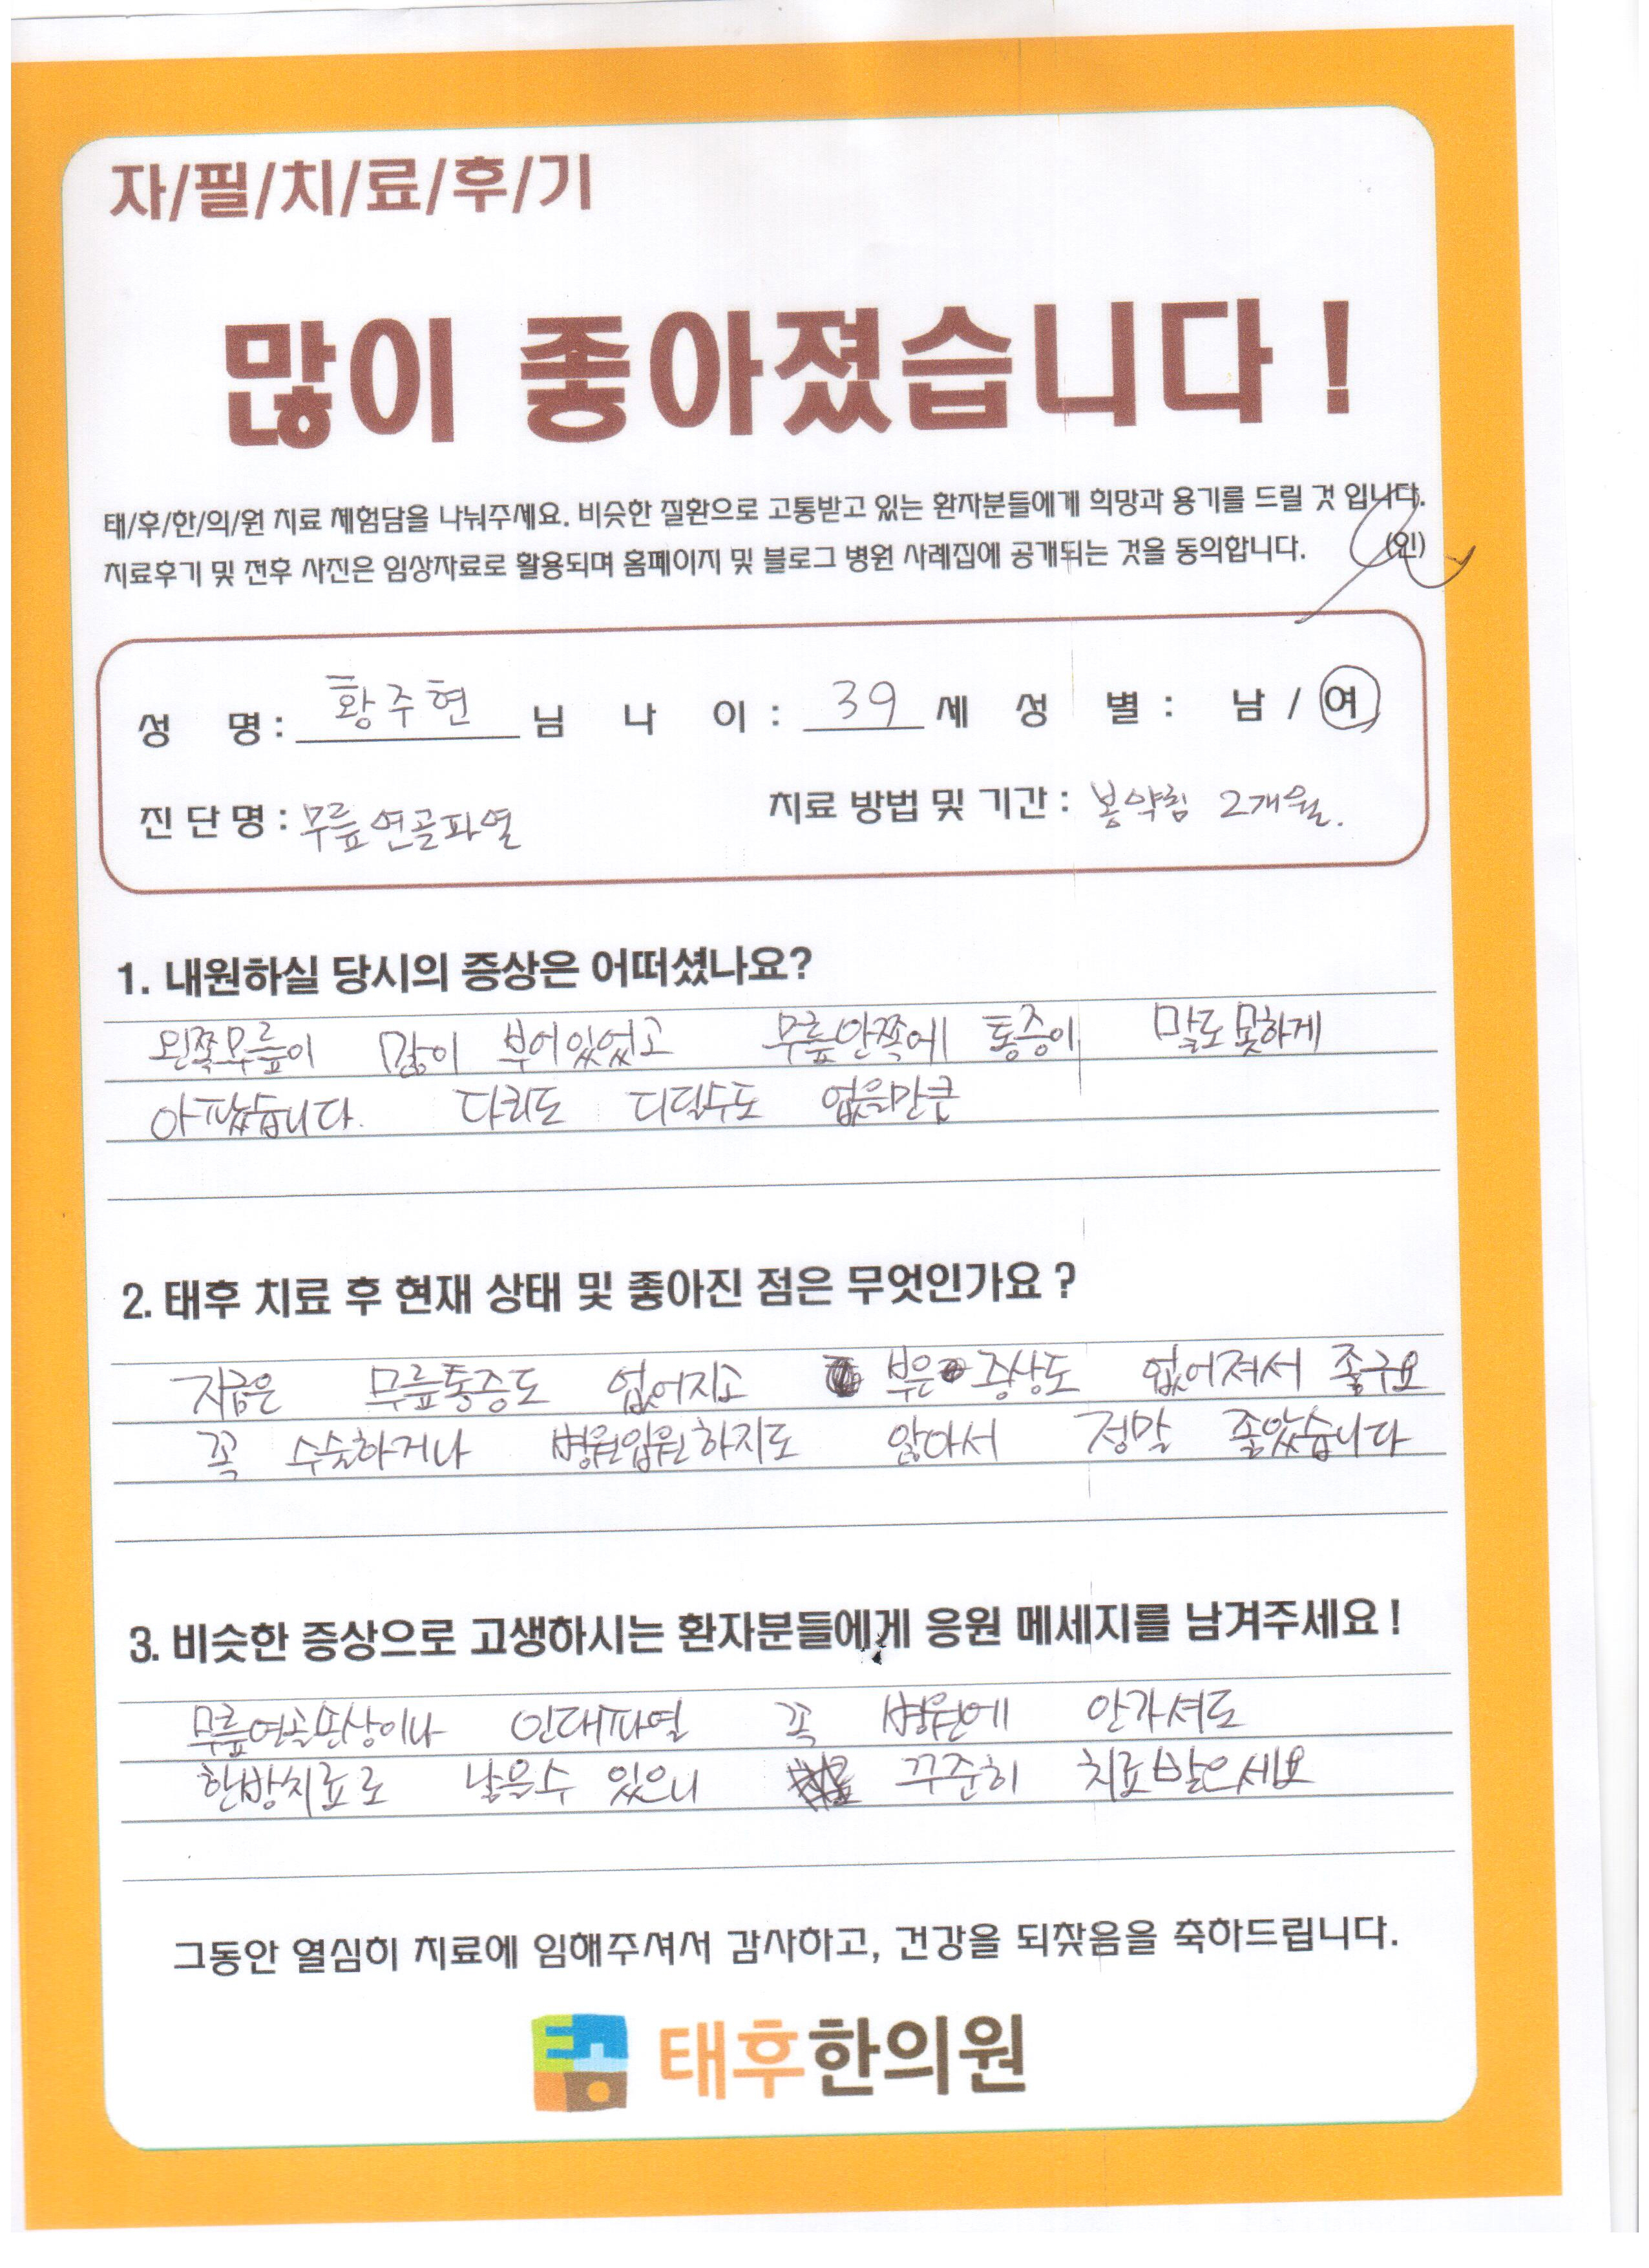 자/필/치/료/후/기
많이 좋아졌습니다!
태/후/한/의/원 치료 체험담을 나눠주세요. 비슷한 질환으로 고통받고 있는 환자분들에게 희망과 용기를 드릴 것 입니다.
치료후기 및 전후 사진은 임상자료로 활용되며 홈페이지 및 블로그 병원 사례집에 공개되는 것을 동의합니다. (인)
성 명 : 황주현 님 나 이 : 39 세 성 별 : 남 / 여
진 단 명 : 무릎연골파열 치료 방법 및 기간 : 봉약침 2개월.
1. 내원하실 당시의 증상은 어떠셨나요?
왼쪽무릎이 많이 부어있었고 무릎안쪽에 통증이 말도못하게
아팠습니다. 다리도 디딜수도 없을만큼
2. 태후 치료 후 현재 상태 및 좋아진 점은 무엇인가요?
지금은 무릎통증도 없어지고 부은 증상도 없어져서 좋구요
꼭 수술하거나 병원입원하지도 않아서 정말 좋았습니다
3. 비슷한 증상으로 고생하시는 환자분들에게 응원 메세지를 남겨주세요!
무릎연골손상이나 인대파열 꼭 병원에 안가셔도
한방치료로 낳을수 있으니 꾸준히 치료받으세요
그동안 열심히 치료에 임해주셔서 감사하고, 건강을 되찾음을 축하드립니다.
태후한의원